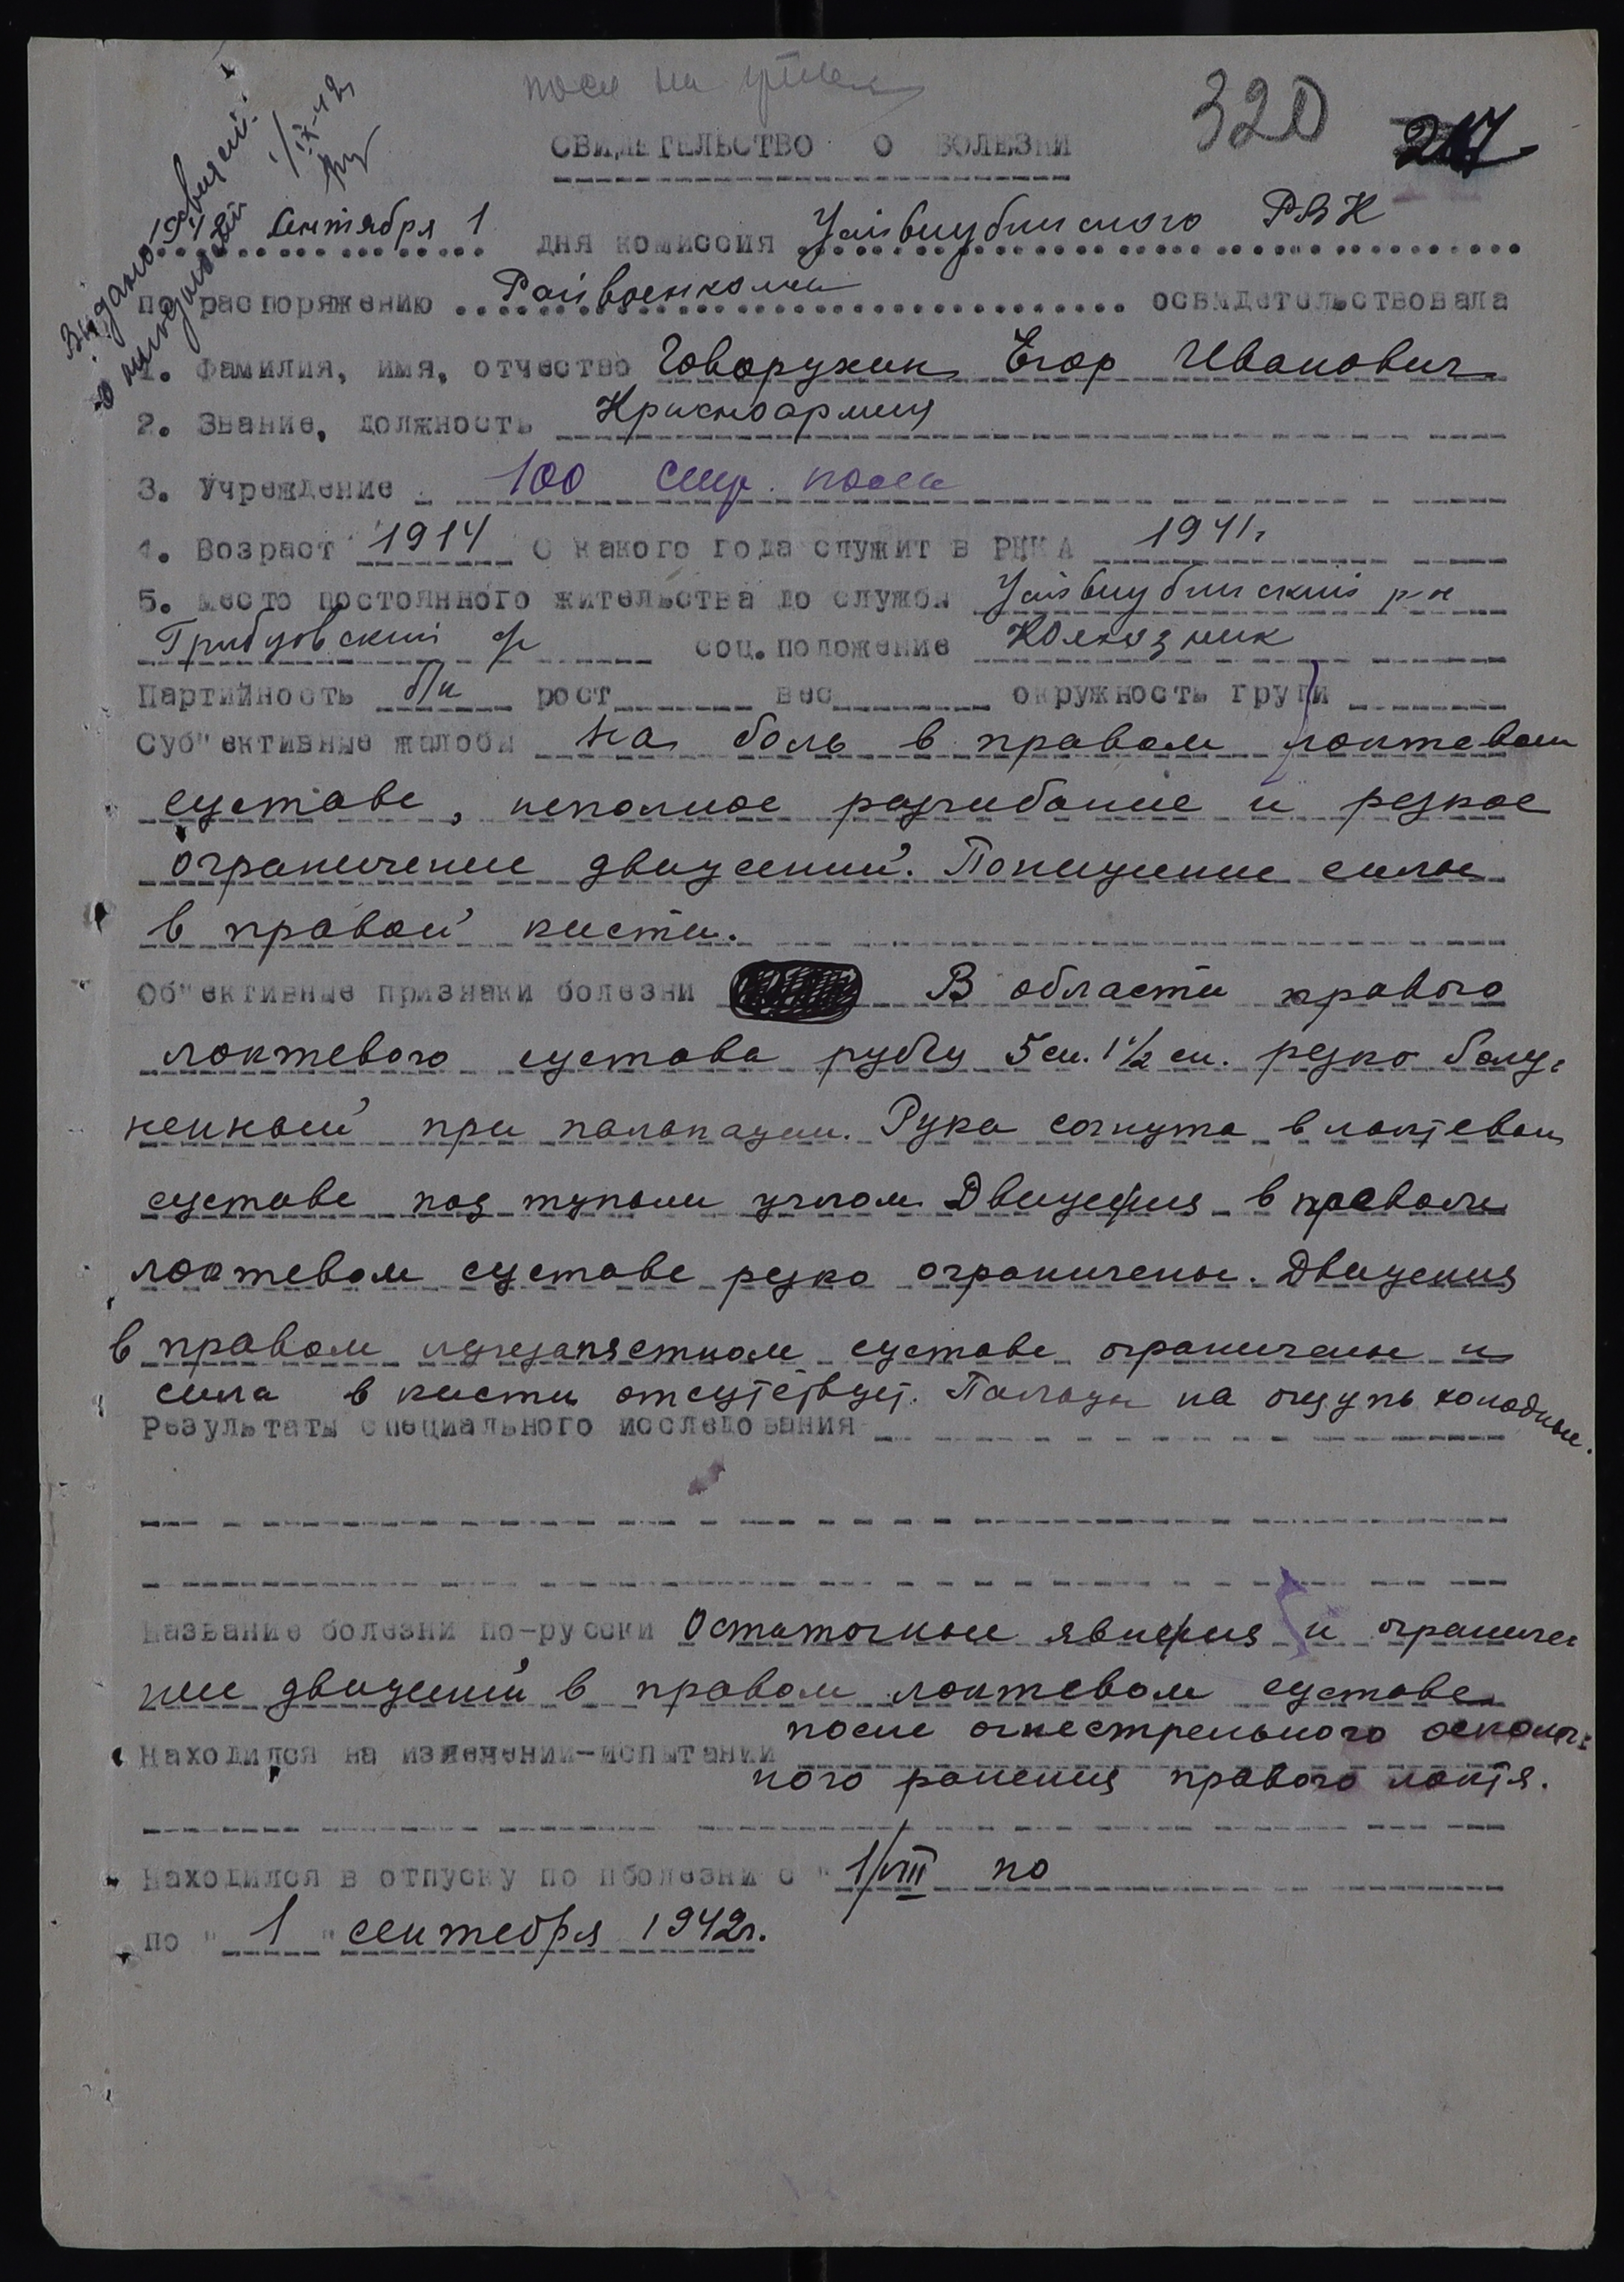 320
217
СВИДЕТЕЛЬСТВО О БОЛЕЗНИ
1942 Сентября 1 дня комиссия Усть-Бузулукского РВК
по распоряжению Райвоенкома освидетельствовала
1. Фамилия, имя, отчество Говорухин Егор Иванович
2. Звание, должность Красноармеец
3. Учреждение 100 стр. полк
4. Возраст 1914 С какого года служит в РККА 1941г
5. Место постоянного жительства до службы р-н
соц. положение Колхозник
Партийность б/п рост вес окружность груди
Суб"ективные жалобы На боль в правом локтевом
суставе, неполное разгибание и резкое
ограничение движений. Понижение силы
в правой кисти.
Об"ективные признаки болезни В области правого
локтевого сустава рубец 5 см. 1 1/2 см. резко болез-
ненный при пальпации. Рука согнута в локтевом
суставе под тупым углом Движения в правом
локтевом суставе резко ограничены. Движения
в правом лучезапястном суставе ограничены и
сила в кисти отсутствует. Пальцы на ощупь холодные.
Результаты специального исследования
Название болезни по-русски Остаточные явления и ограниче
ние движений в правом локтевом суставе
после огнестрельного осколоч-
Находился на излечении-испытании
ного ранения правого локтя.
Находился в отпуску по пболезни с " 1/VIII по
по " 1 " сентября 1942г.